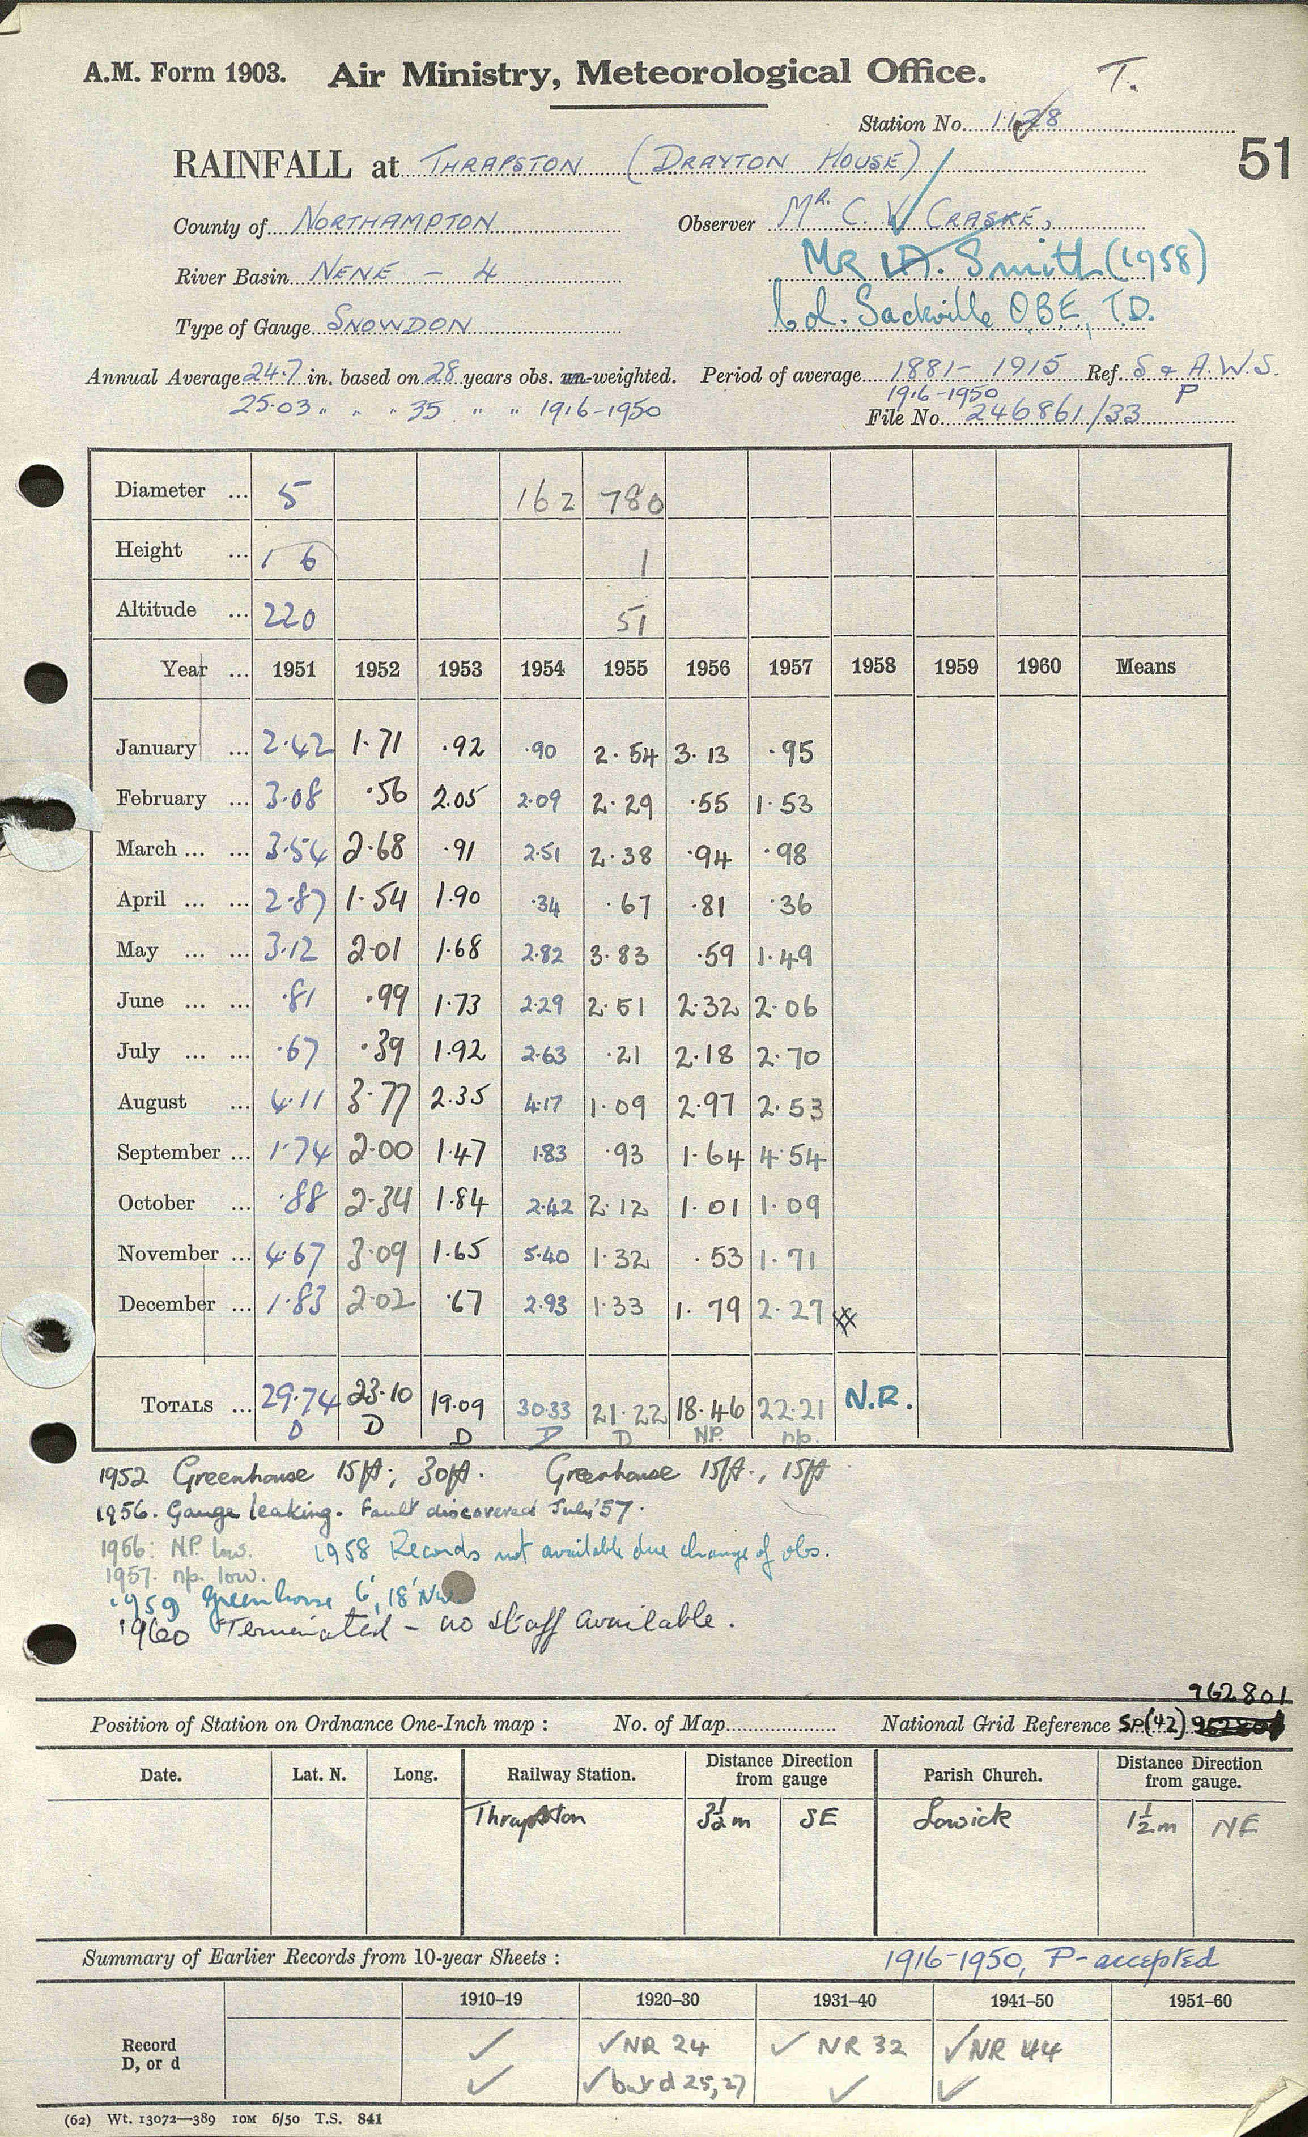 A.M. Form 1903. Air Ministry, Meteorological Office. T.
Station No. 1128
51
RAINFALL at THRAPSTON (DRAYTON HOUSE)
County of NORTHAMPTON Observer MR. C. V. CRASKE,
River Basin NENE - 4 MR A. Smith (1958)
Type of Gauge SNOWDON Col. Sackville OBE, T.D.
Annual Average 24.7 in. based on 28 years obs. un-weighted. Period of average 1881-1915 Ref. S & A.W.S.
25.03 " " " 35 " " 1916-1950 1916-1950 P
File No. 246861/33
Diameter ... 5 162 780
Height ... 1 6 1
Altitude ... 220 51
Year ... 1951 1952 1953 1954 1955 1956 1957 1958 1959 1960 Means
January ... 2.42 1.71 .92 .90 2.54 3.13 .95
February ... 3.08 .56 2.05 2.09 2.29 .55 1.53
March ... ... 3.54 2.68 .91 2.51 2.38 .94 .98
April ... ... 2.87 1.54 1.90 .34 .67 .81 .36
May ... ... 3.12 2.01 1.68 2.82 3.83 .59 1.49
June ... ... .81 .99 1.73 2.29 2.51 2.32 2.06
July ... ... .67 .39 1.92 2.63 .21 2.18 2.70
August ... 4.11 3.77 2.35 4.17 1.09 2.97 2.53
September ... 1.74 2.00 1.47 1.83 .93 1.64 4.54
October ... .88 2.34 1.84 2.42 2.12 1.01 1.09
November ... 4.67 3.09 1.65 5.40 1.32 .53 1.71
December ... 1.83 2.02 .67 2.93 1.33 1.79 2.27
TOTALS ... 29.74 23.10 19.09 30.33 21.22 18.46 22.21 N.R.
D D D D D NP. np.
1952 Greenhouse 15ft; 30ft. Greenhouse 15ft., 15ft
1956. Gauge leaking. Fault discovered July '57.
1956: N.P. low. 1958 Records not available due change of obs.
1957. np. low.
1959 Greenhouse 6', 18' NW
1960 Terminated - no staff available.
962801
Position of Station on Ordnance One-Inch map : No. of Map National Grid Reference SP(42)
Date. Lat. N. Long. Railway Station. Distance Direction from gauge Parish Church. Distance Direction from gauge.
Thrapston 3½m SE Lowick 1½m NE
Summary of Earlier Records from 10-year Sheets : 1916-1950, P-accepted
1910-19 1920-30 1931-40 1941-50 1951-60
Record ✓ ✓NR 24 ✓ NR 32 ✓NR 44
D, or d ✓ ✓but d 25,27 ✓ ✓
(62) Wt. 13072—389 10M 6/50 T.S. 841